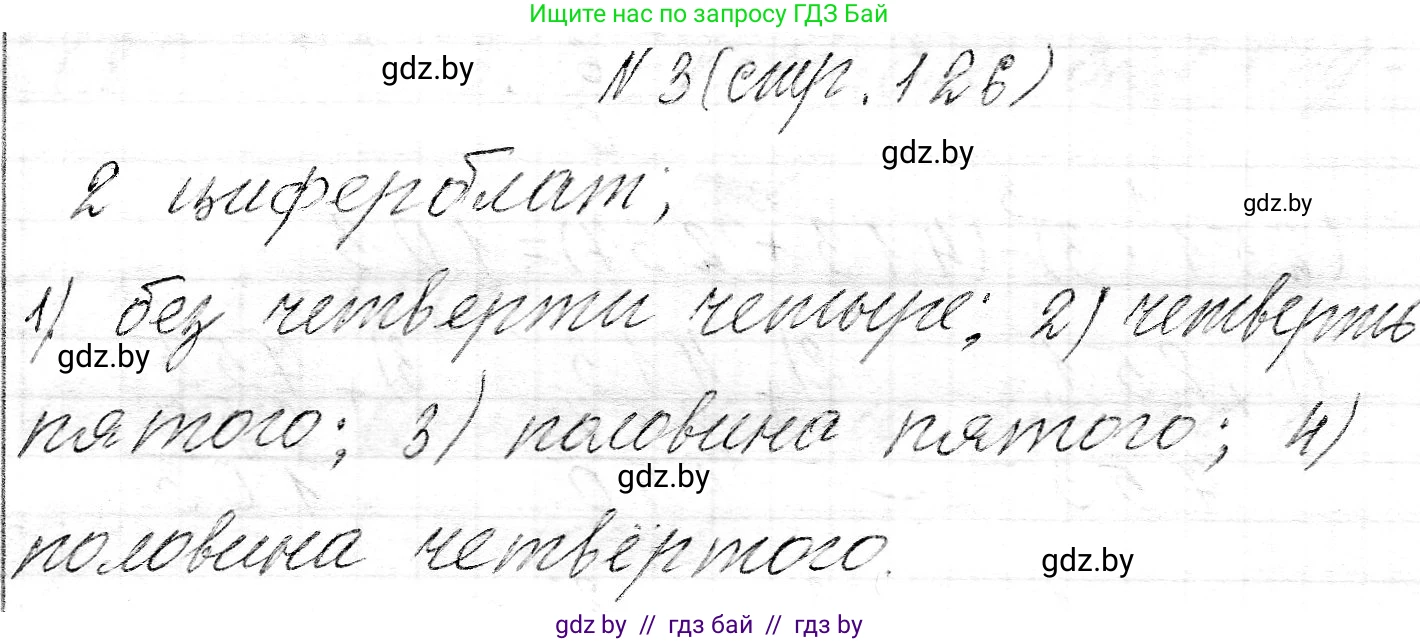 Ищите нас по запросу ГДЗ Бай
gdz.by
N 3 (стр. 126)
gdz.by
2 циферблат;
gdz.by
1) без четверти четыре; 2) четверть
gdz.by
пятого; 3) половина пятого; 4)
gdz.by
половина четвёртого.
gdz.by
gdz by // гдз бай // гдз by